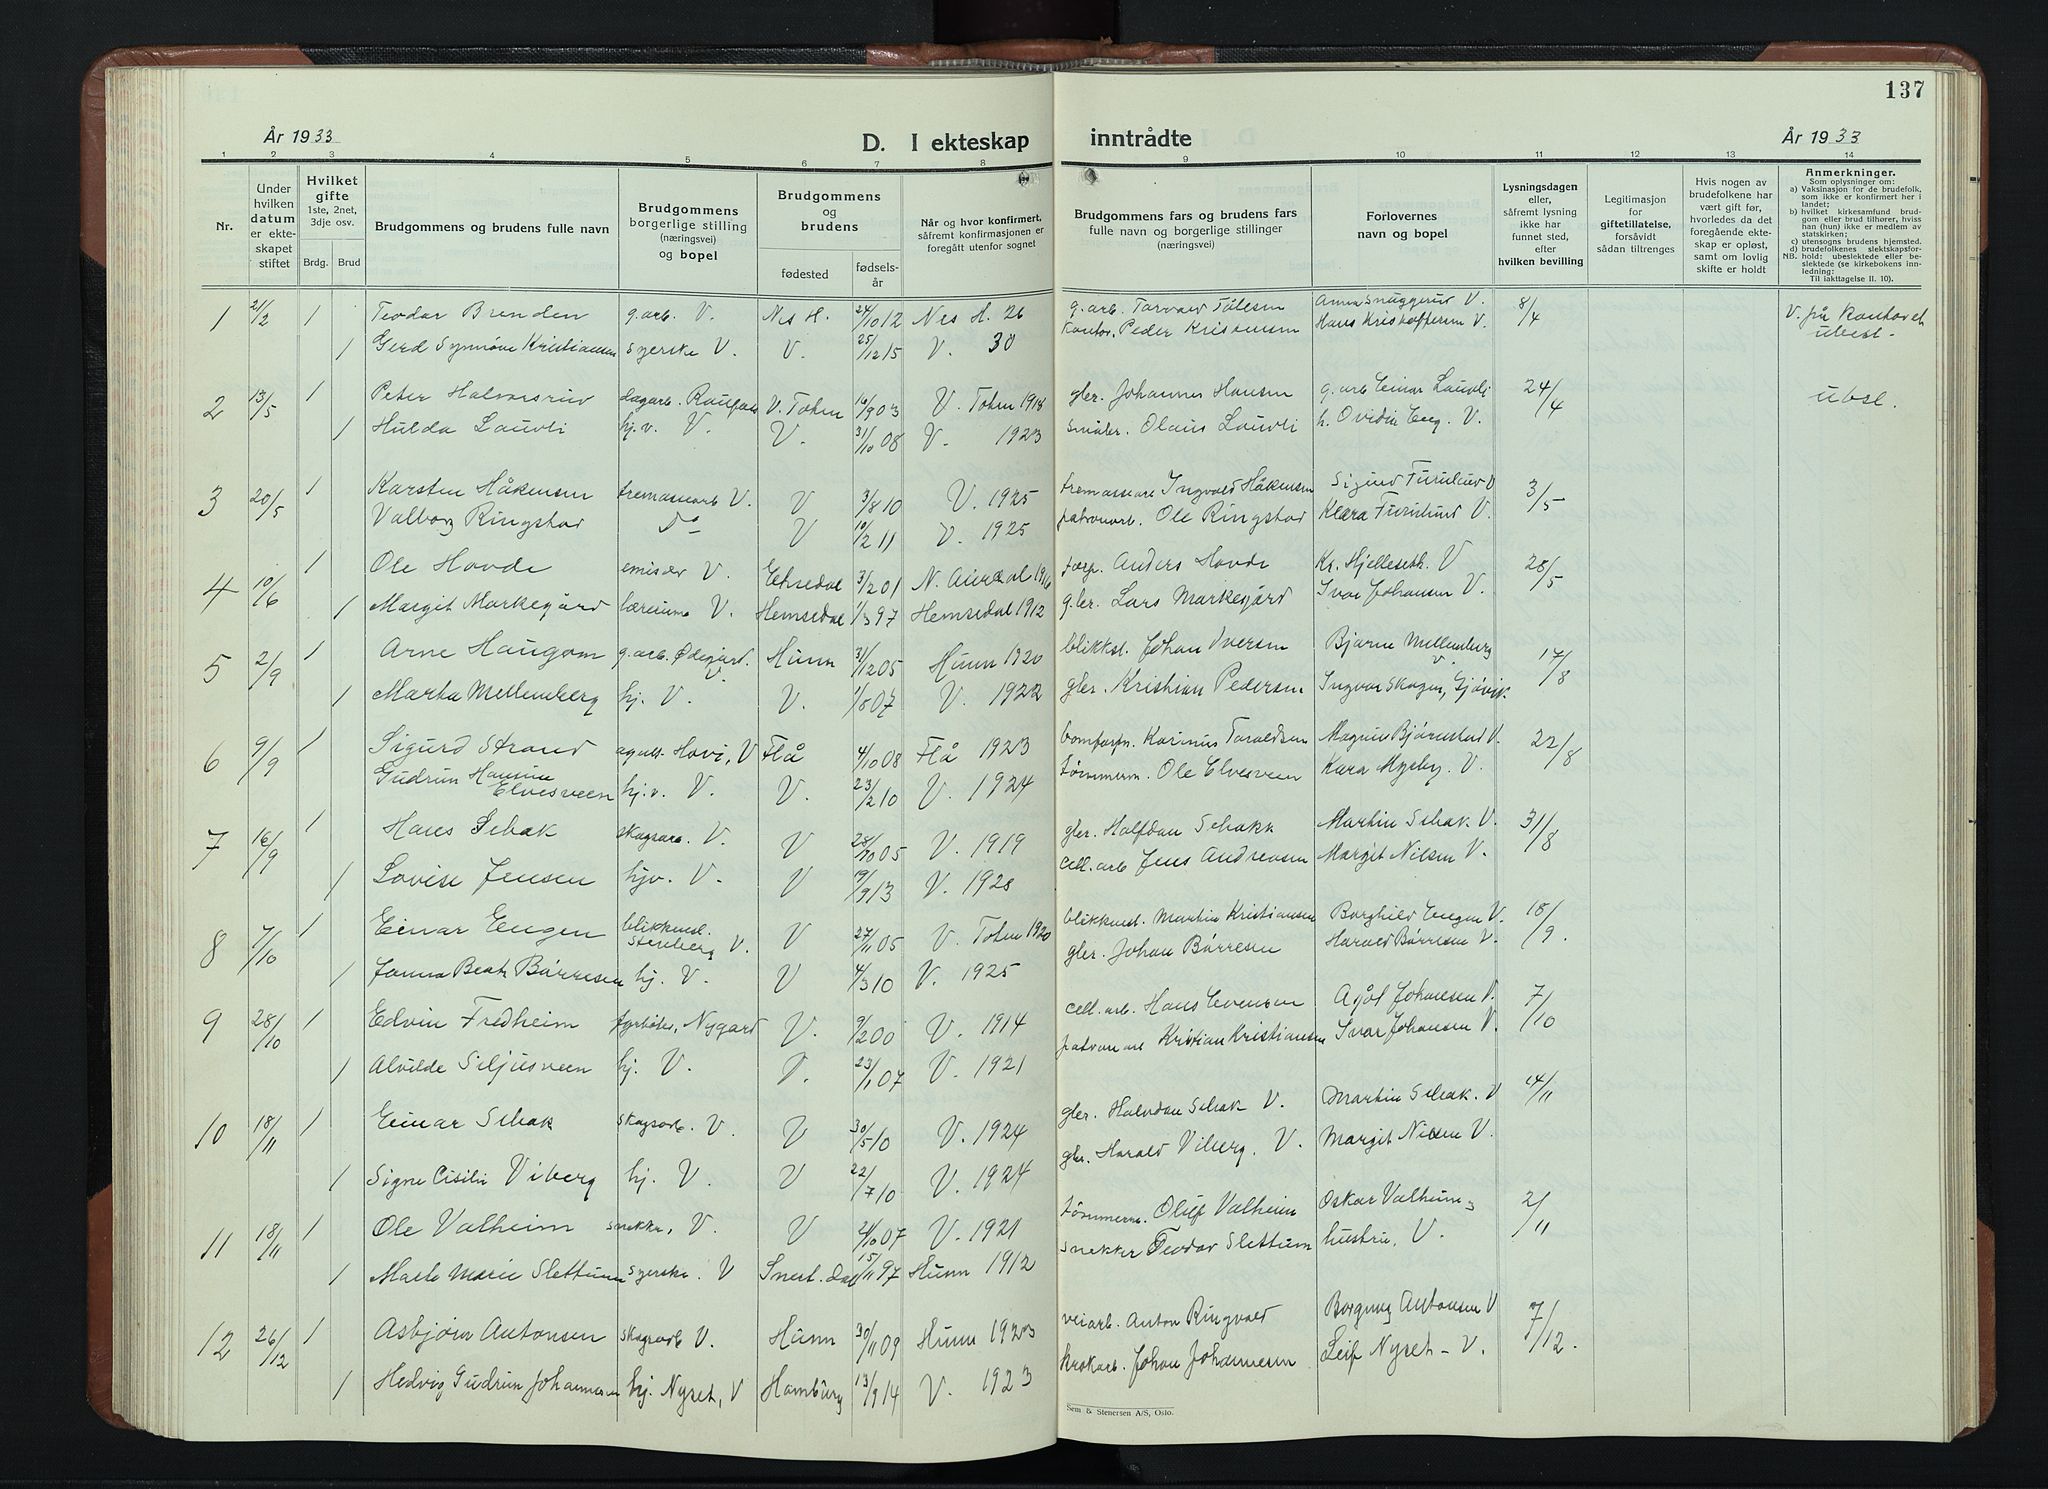 137
År 1933
D. I ekteskap
inntrådte
År 1933
1 2 3 4 5 6 7 8 9 10 11 12 13 14
Nr.
Under hvilken datum er ekteskapet stiftet
Hvilket gifte 1ste, 2net, 3dje osv.
Brdg. Brud
Brudgommens og brudens fulle navn
Brudgommens borgerlige stilling (næringsvei) og bopel
Brudgommens og brudens
fødested
fødselsår
Når og hvor konfirmert, såfremt konfirmasjonen er foregått utenfor sognet
Brudgommens fars og brudens fars fulle navn og borgerlige stillinger (næringsvei)
Forlovernes navn og bopel
Lysningsdagen eller, såfremt lysning ikke har funnet sted, efter hvilken bevilling
Legitimasjon for giftetillatelse, forsåvidt sådan tiltrenges
Hvis nogen av brudefolkene har vært gift før, hvorledes da det foregående ekteskap er opløst, samt om lovlig skifte er holdt
Anmerkninger.
Som oplysninger om:
a) Vaksinasjon for de brudefolk, som ikke er konfirmert her i landet;
b) hvilket kirkesamfund brudgom eller brud tilhører, hviss han (hun) ikke er medlem av statskirken;
c) utensogns brudens hjemsted.
d) brudefolkenes slektskapsforhold: ubeslektede eller beslektede (se kirkebokens innledning:
NB.
Til iakttagelse II. 10).
1 21/2 1 Teodor Brenden g.arb. V. Nes H. 24/10 12 Nes H. 26 g. arb. Torvald Tölesen Anna Snuggerud V. 8/4 V. på kontoret
1 Gerd Synnöve Kristiansen syerske V. V. 25/12 15 V. 30 Peder Kristiansen Hans Kristoffersen V. ubesl.
2 13/5 1 Peter Halvorsrud dagarb. Raufoss V. Toten 10/9 03 V. Toten 1918 gbr. Johannes Hansen g. arb Einar Lauvli 24/4 ubsl.
1 Hulda Lauvli hj.v. V. V. 31/10 08 V. 1923 småbr. Olaus Lauvli h. Ovidia Eng. V.
3 20/5 1 Karsten Håkensen tremassearb V. V 3/8 10 V. 1925 tremassearb Ingvald Håkensen Sigurd Furulund V 3/5
Valborg Ringstad do V 10/2 11 V. 1925 patronarb. Ole Ringstad Klara Furulund V.
4 10/6 1 Ole Hovde emisær V. Etnedal 3/2 01 N. Aurdal 1916 torp. Anders Hovde Kr. Hjelleseth. V 28/5
1 Margit Markegård lærerinne V. Hemsedal 1/3 97 Hemsedal 1912 g.br. Lars Markegård Ivar Johansen V.
5 2/9 1 Arne Haugom g.arb. Ødegård. V Hunn 31/12 05 Hunn 1920 blikksl. Johan Iversen Bjarne Mellemberg V. 17/8
1 Marta Mellemberg hj. V. V. 1/8 07 V. 1922 gbr. Kristian Pedersen Ingvar Skogen, Gjøvik
6 9/9 1 Sigurd Strand Hovi, V Flå 4/10 08 Flå 1923 Karinus Taraldsen Magnus Bjørnstad V. 22/8
Gudrun Hansine Elvesveen hj.v. V. V. 23/2 10 V. 1924 tömmerm. Ole Elvesveen Kara Myrby. V.
7 16/9 1 Hans Schak skogsarb. V. V 28/10 05 V. 1919 gbr. Halfdan Schakk Martin Schak V. 31/8
1 Lovise Jensen hjv. V. V 19/9 13 V. 1928 cell. arb Jens Andreasen Margit Nilsen V.
8 7/10 1 Einar Engen blikkensl. Stenberg V. V 27/11 05 V. Toten 1920 blikkensl. Martin Kristiansen Borghild Engen V. 18/9.
1 Janna Beate Børresen hj. V. V 4/3 10 V. 1925 gbr. Johan Børresen Harald Børresen V.
9 28/10 1 Edvin Fredheim fyrböter, Nygard V. 9/2 00 V. 1914 cell. arb. Hans Evensen Johansen V. 7/10
1 Alvilde Siljusveen hj. V. V. 23/1 07 V. 1921 patron arb Kristian Kristiansen Ivar Johansen V.
10 18/11 1 Einar Schak skogsarb. V. V 30/5 10 V. 1924 gbr. Halvdan Schak V. Martin Schak. V 4/11
1 Signe Cisilie Viberg hj. V. V 22/7 10 V. 1924 gbr. Harald Viberg. V. Margit Nilsen V.
11 18/11 1 Ole Valheim snekker, V. V 21/10 07 V. 1921 tömmerm. Oluf Valheim Oskar Valheim og 2/11
1 Marte Marie Slettum syerske. V Snert. dal 15/11 97 Hunn 1912 snekker Teodor Slettum hustru, V.
12 26/12 1 Asbjørn Antonsen skogsarb V. Hunn 30/11 09 Hunn 1923 veiarb. Anton Ringvold Borgny Antonsen V 7/12.
1 Hedvig Gudrun Johannesen hj. Nyset, V Hamburg 13/9 14 V. 1923 krokarb. Johan Johannesen Leif Nyset – V.
Sem & Stenersen A/S, Oslo.